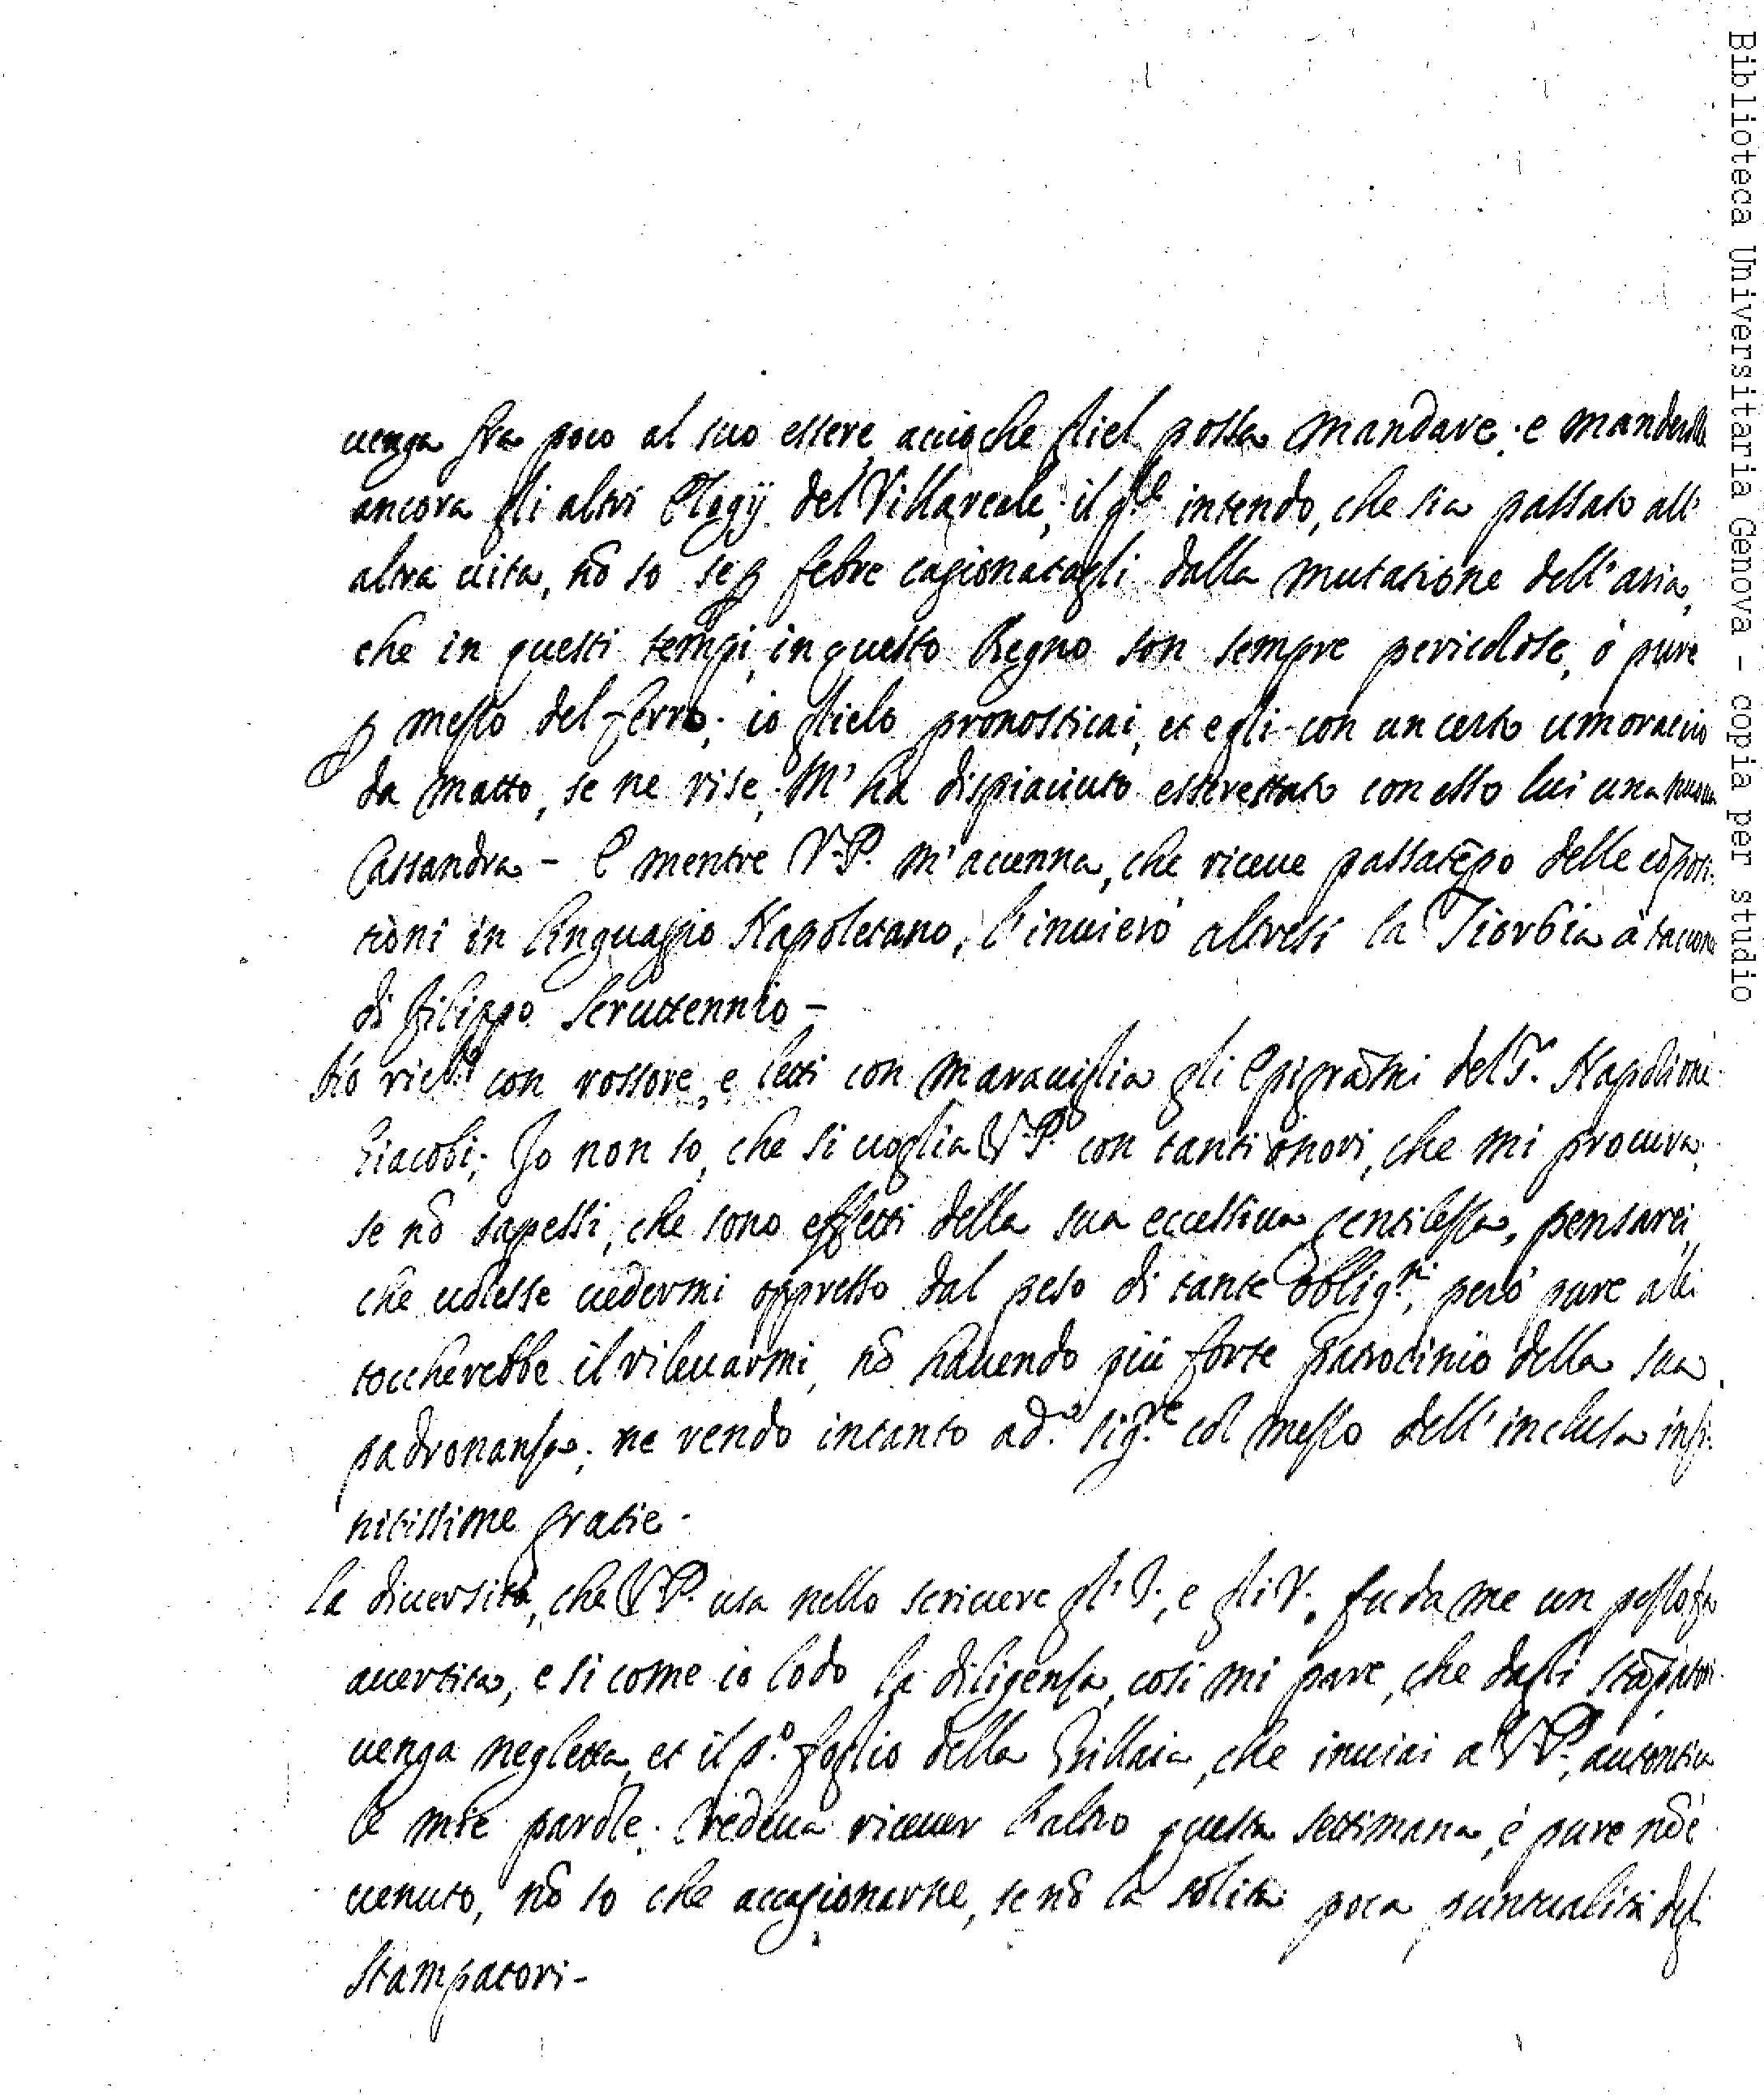 uenga fra poco al suo essere, accioche gliel possa mandare; e manderolle
ancora gli altri Elogij del Villareale; il qle intendo, che sia passato all'
altra uita, nõ so se ꝑ febre cagionatagli dalla mutatione dell'aria,
che in questi tempi, in questo Regno son sempre pericolose, ò pure
ꝑ mezzo del ferro; io glielo pronosticai, et egli con un certo umoraccio
da matto, se ne rise. M'ha dispiaciuto esser stato con esso lui una nuoua
Cassandra - E mentre V.P. m'accenna, che riceue passatẽpo delle cõposi-
tioni in linguaggio Napoletano, l'inuierò altresì la Tiorbia à taccone
di Filippo Scruttennio -
Hò rice.ti con rossore, e letti con marauiglia gli Epigrãmi del P. Napolioni
Giacobi; Io non so, che si uoglia V.P. con tanti onori, che mi procura;
se nõ sapessi, che sono effetti della sua eccessiua gentilezza, pensarei,
che uolesse uedermi oppresso dal peso di tante obblig.ni; però pure a lei
toccherebbe il rileuarmi, nõ hauendo più forte patrocinio della sua
padronanza; ne rendo intanto a d.o sig.re col mezzo dell'inclusa infi-
nitissime gratie.
La diuersità, che V.P. usa nello scriuere gl'I., e gli V. fu da me un pezzo fa
auertita, e si come io lodo la diligenza, così mi pare, che dagli stãpatori
uenga negletta, et il p.o foglio della Grillaia, che inuiai a V.P., autentica
le mie parole. Credeua riceuer l'altro questa settimana, e pure nõ è
uenuto, nõ so che accagionarne, se nõ la solita poca puntualità degli
Stampatori -
Biblioteca Universitaria Genova - copia per studio